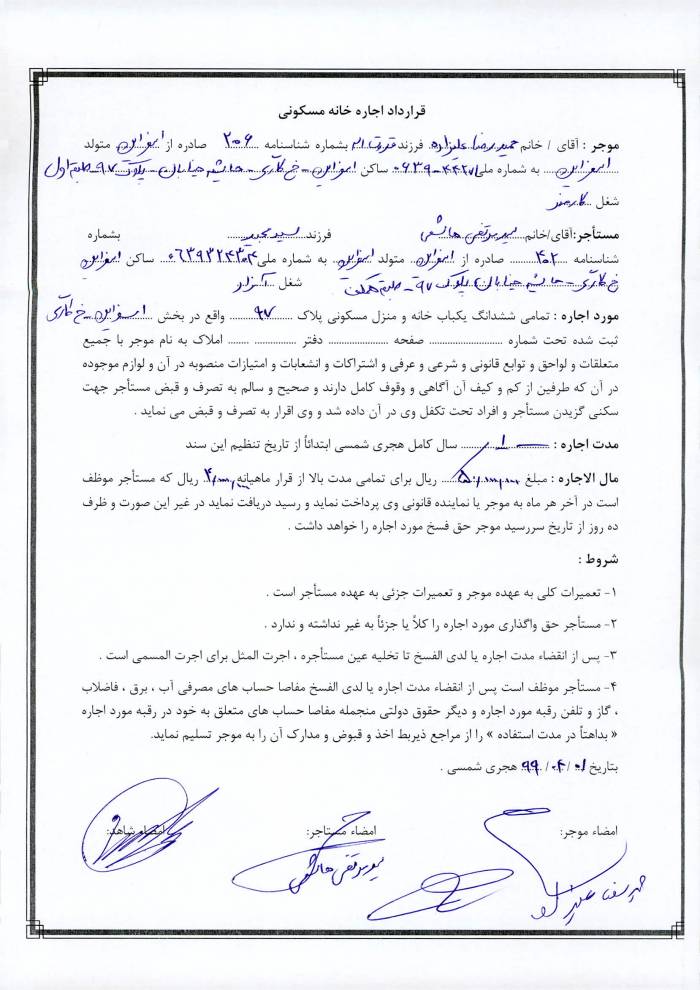 قرارداد اجاره خانه مسکونی
موجر : آقای / خانم حمیدرضا علیزاده فرزند قدرت اله بشماره شناسنامه ۲۰۶ صادره از اسفراین متولد
اسفراین به شماره ملی ساکن اسفراین - خ کارگری - حاشیه خیابان - پلاک ۹۷ - طبقه اول
شغل کارمند
مستأجر:آقای/خانم سید مرتضی هاشمی فرزند سید محمد بشماره
شناسنامه ۴۰۲ صادره از اسفراین متولد اسفراین به شماره ملی ساکن اسفراین
خ کارگری - حاشیه خیابان پلاک ۹۷ - طبقه شغل آزاد
مورد اجاره : تمامی ششدانگ یکباب خانه و منزل مسکونی پلاک ۹۷ واقع در بخش اسفراین - خ کارگری
ثبت شده تحت شماره صفحه دفتر املاک به نام موجر با جمیع
متعلقات و لواحق و توابع قانونی و شرعی و عرفی و اشتراکات و انشعابات و امتیازات منصوبه در آن و لوازم موجوده
در آن که طرفین از کم و کیف آن آگاهی و وقوف کامل دارند و صحیح و سالم به تصرف و قبض مستأجر جهت
سکنی گزیدن مستأجر و افراد تحت تکفل وی در آن داده شد و وی اقرار به تصرف و قبض می نماید .
مدت اجاره : ۱ سال کامل هجری شمسی ابتدائاً از تاریخ تنظیم این سند
مال الاجاره : مبلغ ریال برای تمامی مدت بالا از قرار ماهیانه ریال که مستأجر موظف
است در آخر هر ماه به موجر یا نماینده قانونی وی پرداخت نماید و رسید دریافت نماید در غیر این صورت و ظرف
ده روز از تاریخ سررسید موجر حق فسخ مورد اجاره را خواهد داشت .
شروط :
۱- تعمیرات کلی به عهده موجر و تعمیرات جزئی به عهده مستأجر است .
۲- مستأجر حق واگذاری مورد اجاره را کلاً یا جزئاً به غیر نداشته و ندارد .
۳- پس از انقضاء مدت اجاره یا لدی الفسخ تا تخلیه عین مستأجره ، اجرت المثل برای اجرت المسمی است .
۴- مستأجر موظف است پس از انقضاء مدت اجاره یا لدی الفسخ مفاصا حساب های مصرفی آب ، برق ، فاضلاب
، گاز و تلفن رقبه مورد اجاره و دیگر حقوق دولتی منجمله مفاصا حساب های متعلق به خود در رقبه مورد اجاره
« بداهتاً در مدت استفاده » را از مراجع ذیربط اخذ و قبوض و مدارک آن را به موجر تسلیم نماید.
بتاریخ ۰۱ / ۰۴ / ۹۹ هجری شمسی .
امضاء موجر: امضاء مستاجر: امضاء شاهد:
سید مرتضی هاشمی